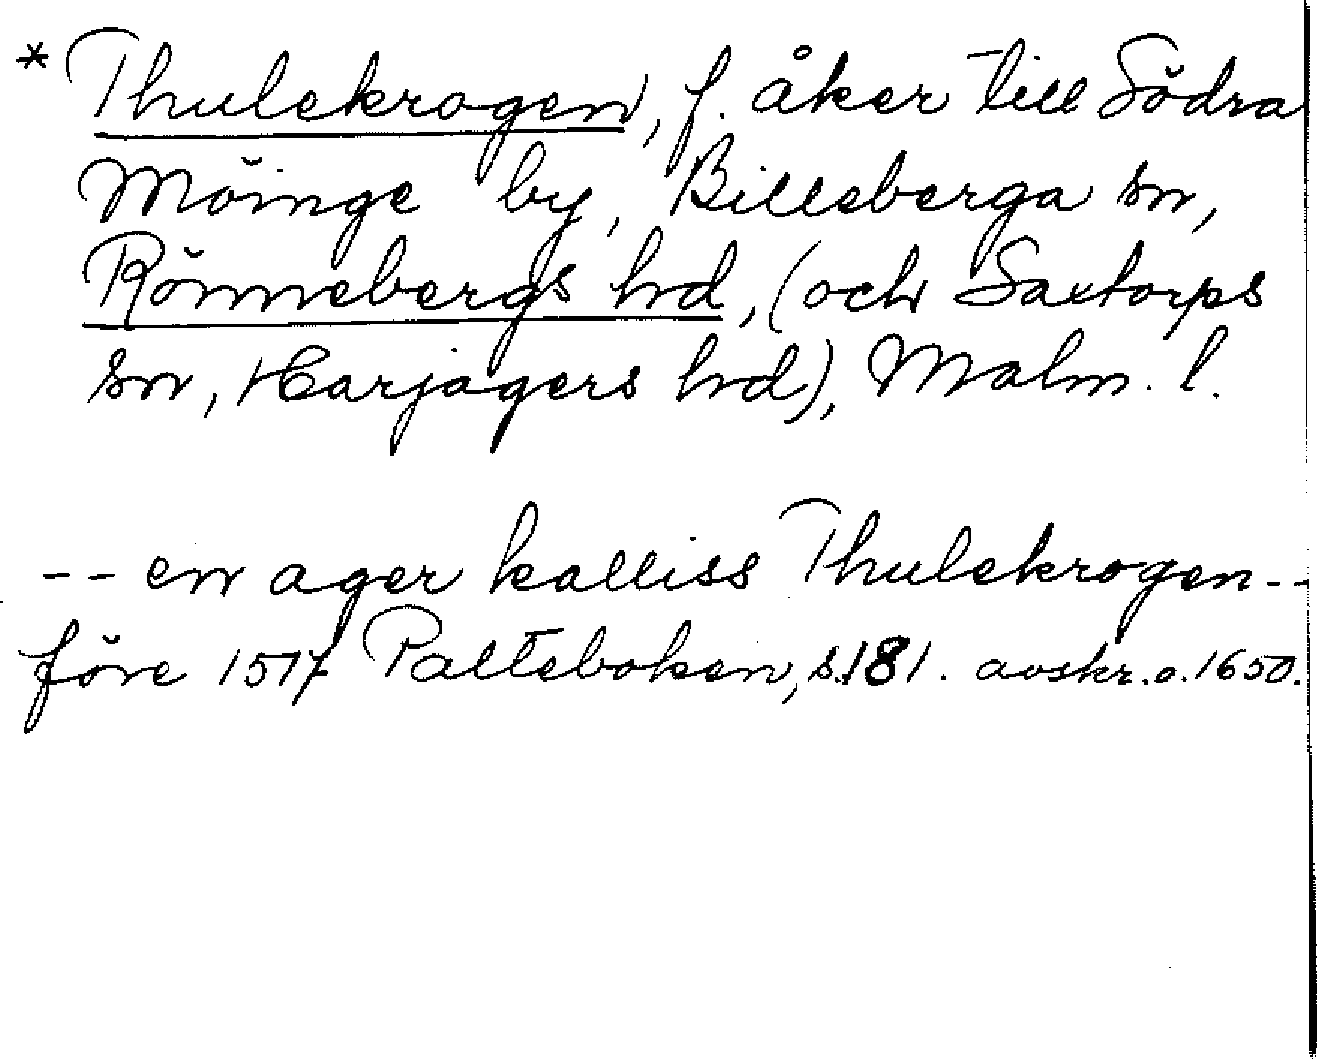 * Thulekrogen, f. åker till Södra
Möinge by, Billeberga sn,
Rönnebergs hd, (och Saxtorps
sn, Harjagers hd), Malm. l.
-- en ager kalliss Thulekrogen --
före 1517 Palteboken, s. 181. avskr. o. 1650.